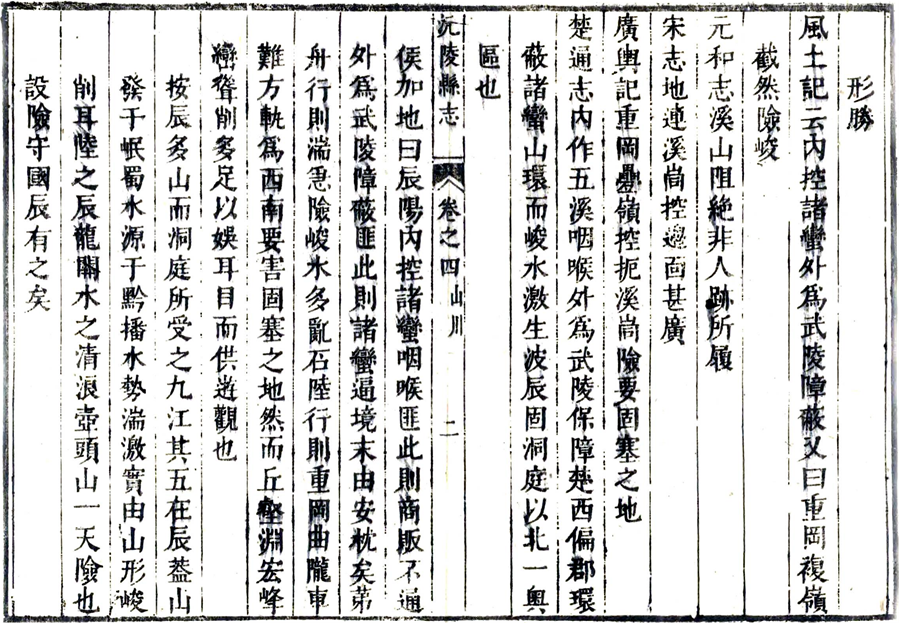 形勝
風土記云內控諸蠻外爲武陵障蔽又曰重岡複嶺
截然險峻
元和志溪山阻絶非人跡所履
宋志地連溪峝控邊面甚廣
廣輿記重岡疊嶺控扼溪峝險要固塞之地
楚通志內作五溪咽喉外爲武陵保障楚西偏郡環
蔽諸蠻山環而峻水激生波辰固洞庭以北一奧
區也
沅陵縣志 卷之四 山川 二
侯加地曰辰陽內控諸蠻咽喉匪此則商販不通
外爲武陵障蔽匪此則諸蠻逼境末由安枕矣第
舟行則湍急險峻水多亂石陸行則重岡曲隴車
難方軌爲西南要害固塞之地然而丘壑淵宏峰
巒聳削多足以娛耳目而供遊觀也
按辰多山而洞庭所受之九江其五在辰葢山
發于岷蜀水源于黔播水勢湍激實由山形峻
削耳陸之辰龍關水之清浪壺頭山一天險也
設險守國辰有之矣